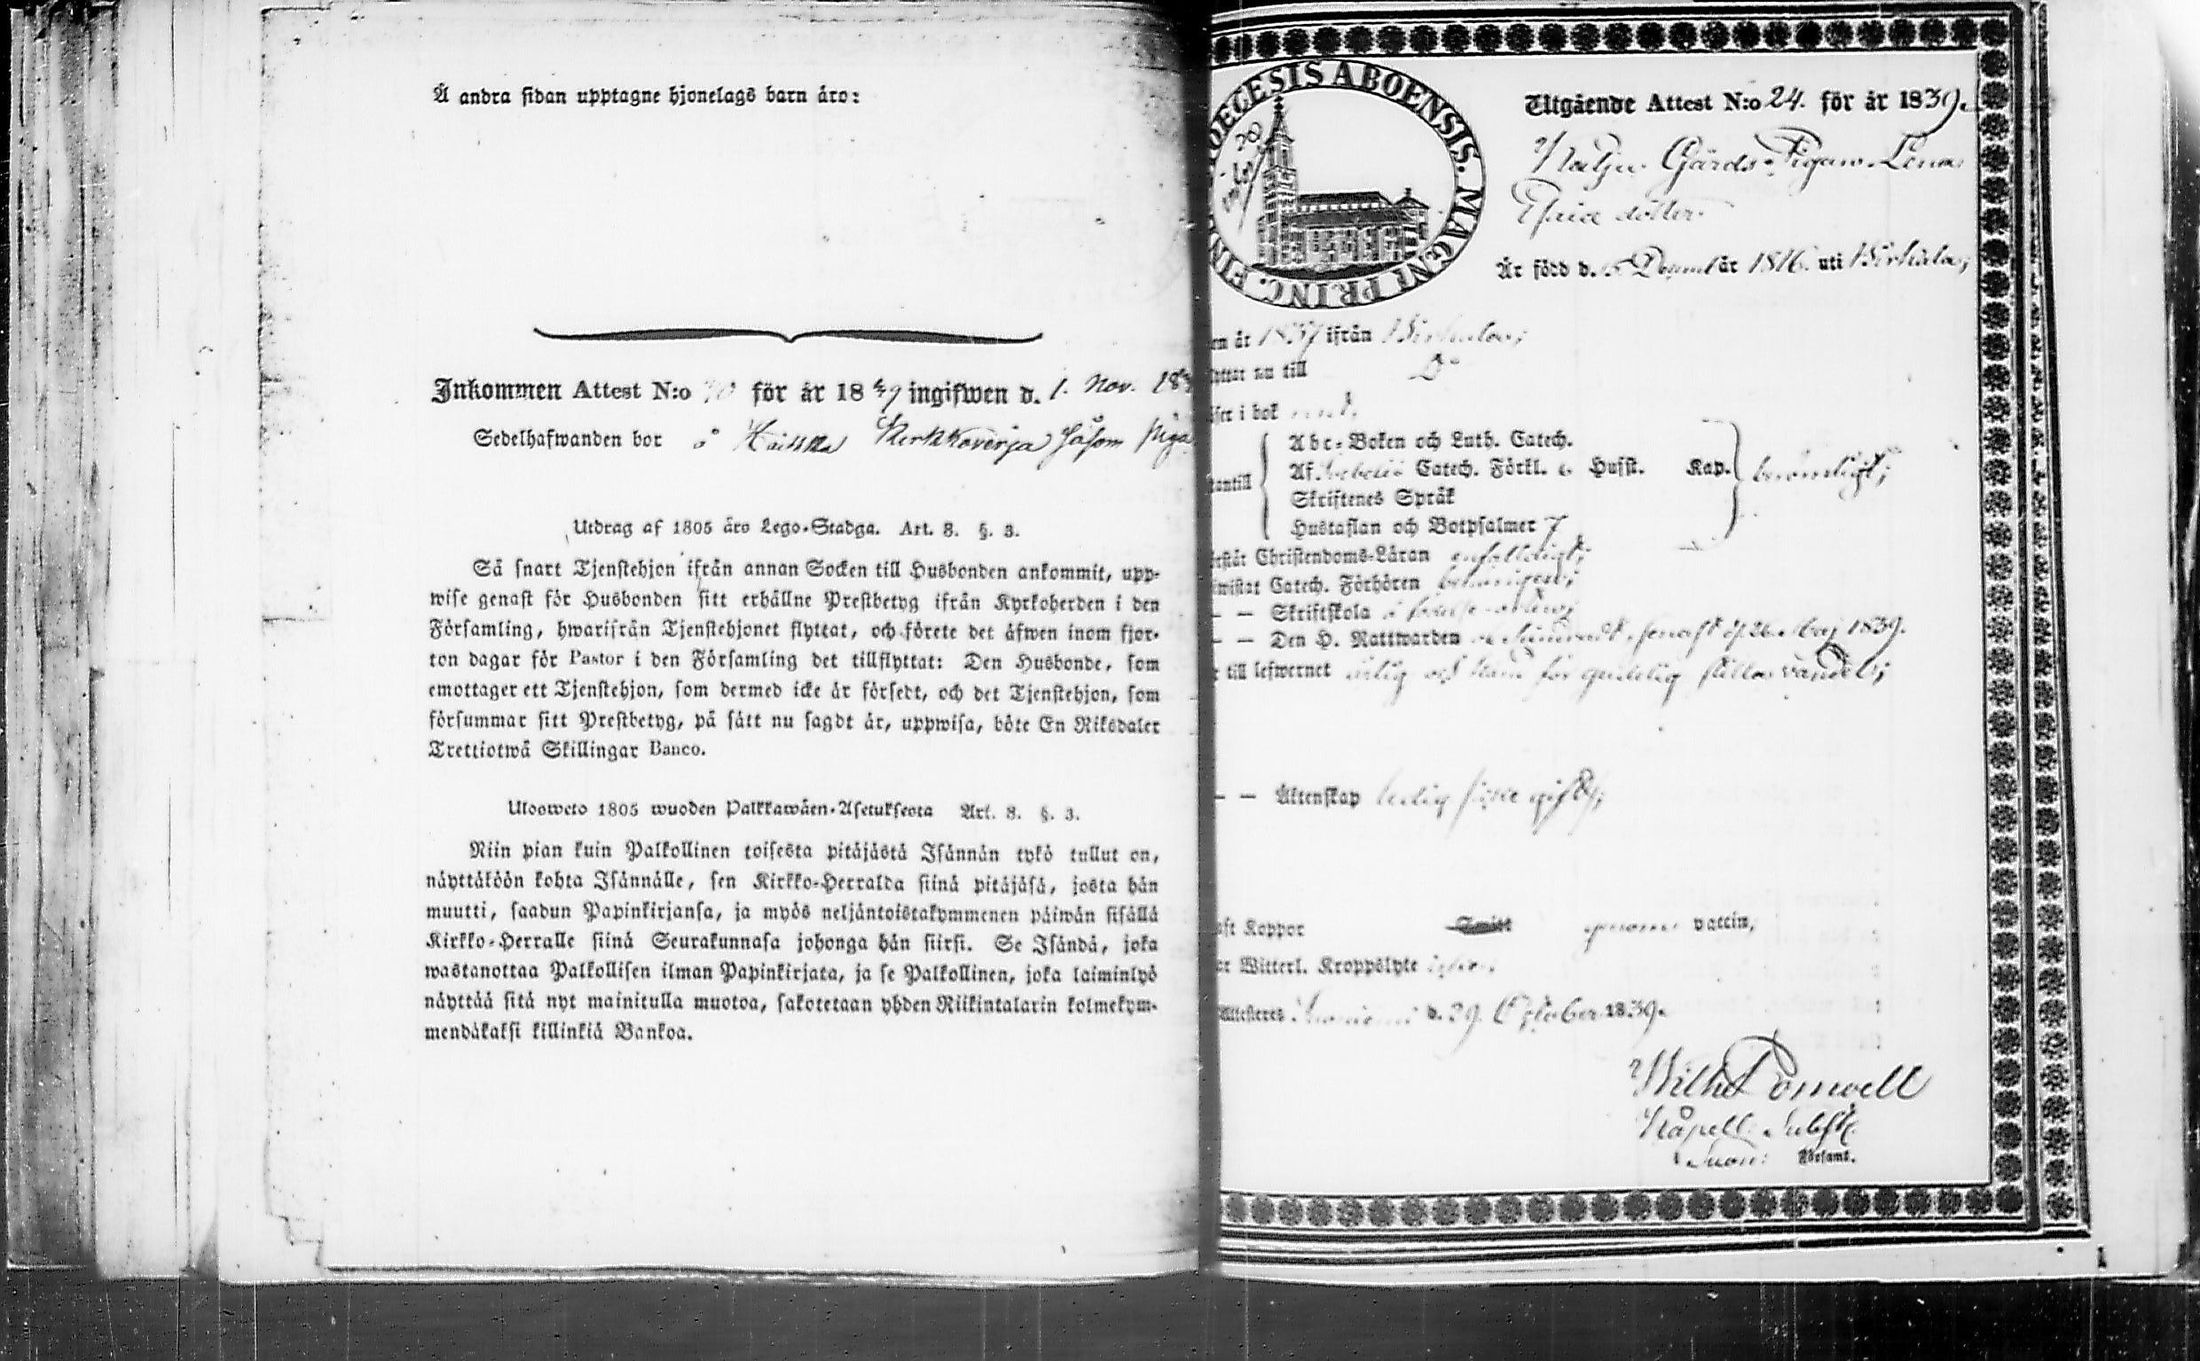 Å andra sidan upptagne hjonelags barn äro:
Inkommen Attest N:o för år 1839 ingifwen d. 1. Nov. 183
Sedelhafwanden bor å Kerkkoverja såsom piga
Utdrag af 1805 års Lego-Stadga. Art. 8. §. 3.
Så snart Tjenstehjon ifrån annan Socken till Husbonden ankommit, upp-
wise genast för Husbonden sitt erhållne Prestbetyg ifrån Kyrkoherden i den
Församling, hwarifrån Tjenstehjonet flyttat, och förete det äfwen inom fjor-
ton dagar för Pastor i den Församling det tillflyttat: Den Husbonde, som
emottager ett Tjenstehjon, som dermed icke är försedt, och det Tjenstehjon, som
försummar sitt Prestbetyg, på sätt nu sagdt är, uppwisa, böte En Riksdaler
Trettiotwå Skillingar Banco.
Ulosweto 1805 wuoden Palkkawäen-Asetuksesta Art. 8. §. 3.
Niin pian kuin Palkollinen toisesta pitäjästä Isännän tykö tullut on,
näyttäköön kohta Isännälle, sen Kirkko-Herralda siinä pitäjäsä, josta hän
muutti, saadun Papinkirjansa, ja myös neljäntoistakymmenen päiwän sisällä
Kirkko-Herralle siinä Seurakunnasa johonga hän siirsi. Se Isändä, joka
wastanottaa Palkollisen ilman Papinkirjata, ja se Palkollinen, joka laiminlyö
näyttää sitä nyt mainitulla muotoa, sakotetaan yhden Riikintalarin kolmekym-
mendäkaksi killinkiä Bankoa.
DIOECESIS ABOENSIS. MAGNI PRINC. FINL
Utgående Attest N:o 24. för år 1839.
Gårds Pigan Lena
Ericsdotter
Är född d. Decemb år 1816. uti Birkala;
en år 1837 ifrån Birkala;
lyttar nu till Do
äser i bok
Abc-Boken och Luth. Catech.
Af Swebelii Catech. Förkl. o Husst. Kap. berömligt;
tantill
Skriftenes Språk
Hustaflan och Botpsalmer 7
rstår Christendoms-Läran enfaldeligt;
iwistat Catech. Förhören behörigen;
— — Skriftskola
— — Den H. Nattwarden senast d. 26 Maj 1839.
r till lefwernet ärlig och känd för gudelig stilla vandel;
— — Äktenskap ledig före gifte;
aft Koppor genom vaccin,
ar Witterl. Kroppslyte
Attesteres Suoniemi d. 29. October 1839.
Wilh Pomoell
Kapell. Subst.
i Suon: Församl.